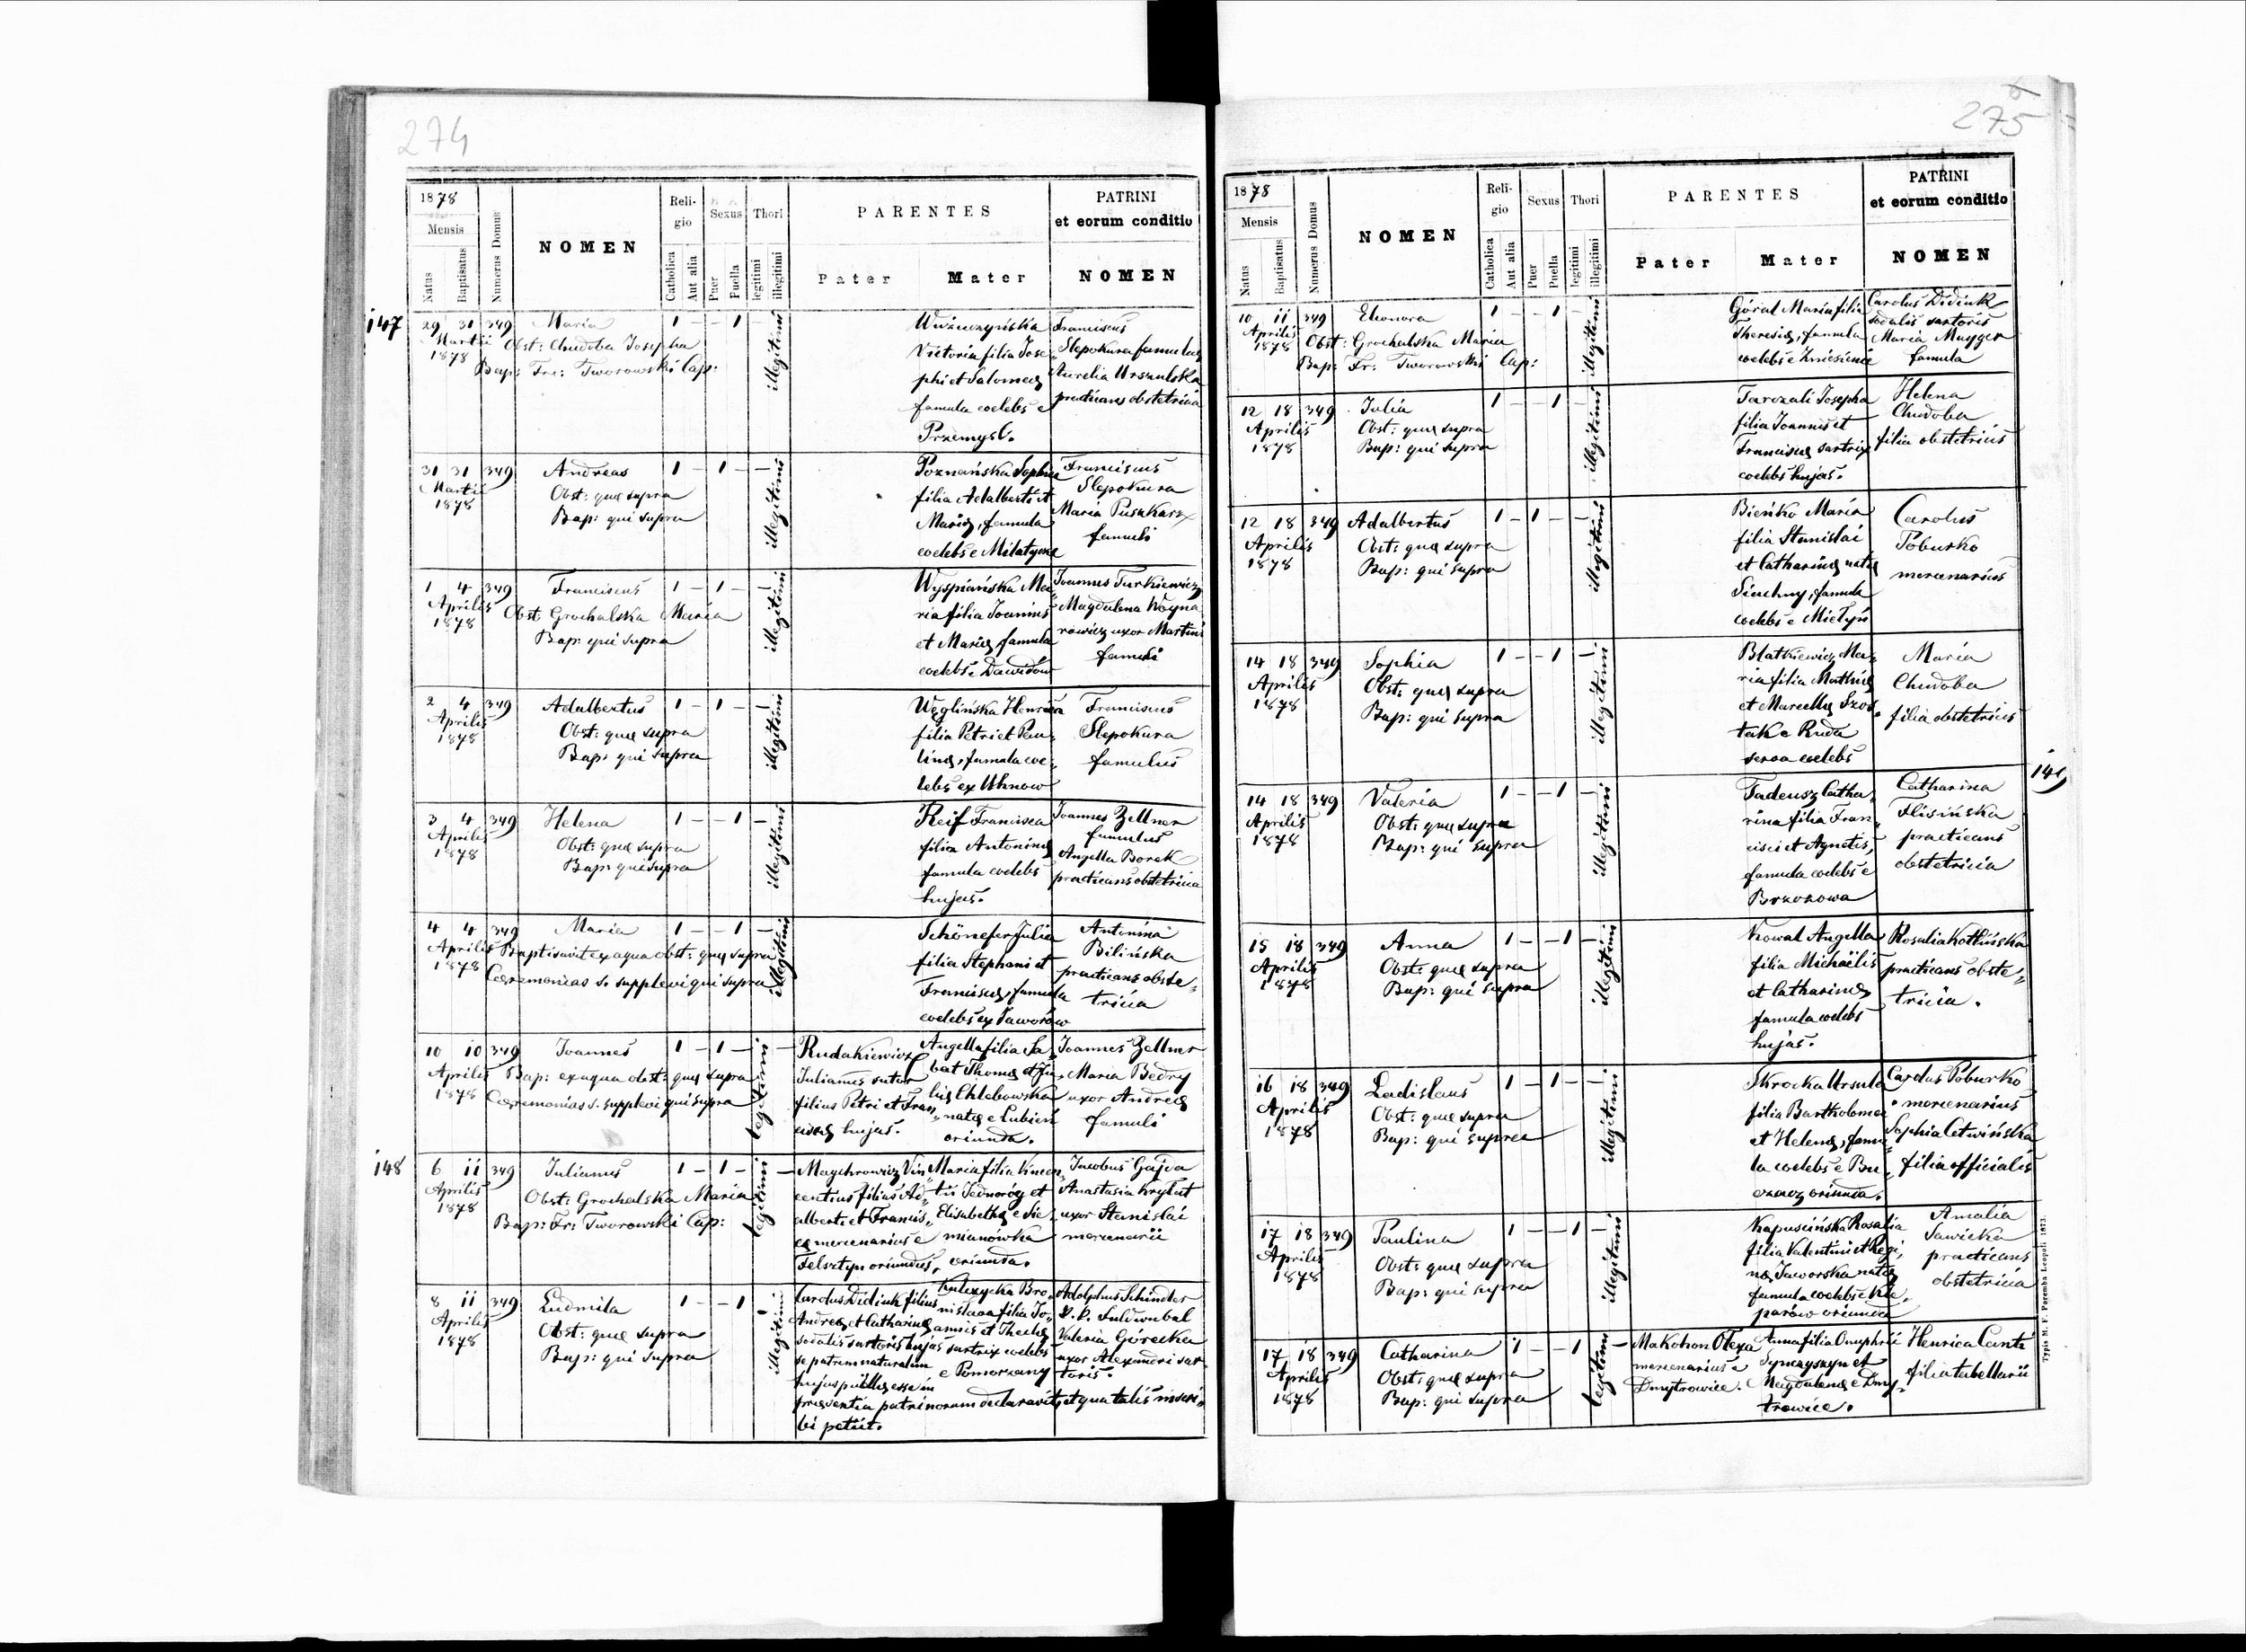 274
1878
Mensis
Natus
Baptisatus
Numerus Domus
NOMEN
Religio
Catholica
Aut alia
Sexus
Puer
Puella
Thori
legitimi
illegitimi
PARENTES
Pater
Mater
PATRINI
et eorum conditio
NOMEN
147
29 31 349 Maria 1 - - 1 -
Martii
1878
Obst: Chudoba Josepha
Bap: Fr: Tworowski Cap:
illegitimi
Victoria filia Jose-
phi et Salomeę
famula coelebs e
Przemysl.
Franciscus
Slepokura famulus
Aurelia Urszulska
practicans obstetricia
31 31 349 Andreas 1 - 1 - -
Martii
1878
Obst: quę supra
Bap: qui supra
illegitimi
Poznańska Sophia
filia Adalberti et
Marię, famula
coelebs e Milatyne
Franciscus
Slepokura
Maria Puszkarz
famuli
1 4 349 Franciscus 1 - 1 - -
Aprilis
1878
Obst: Grochalska Maria
Bap: qui supra
illegitimi
Wyspiańska Ma-
ria filia Joannis
et Marię, famula
coelebs e Dawidów
Joannes Turkiewicz
Magdalena Woyna
rowicz uxor Martini
famuli
2 4 349 Adalbertus 1 - 1 - -
Aprilis
1878
Obst: quę supra
Bap: qui supra
illegitimi
Węglińska Henrica
filia Petri et Pau-
linę, famula coe-
lebs ex Uhnow
Franciscus
Slepokura
famulus
3 4 349 Helena 1 - - 1 -
Aprilis
1878
Obst: quę supra
Bap: qui supra
illegitimi
Reif Francisca
filia Antoninę
famula coelebs
hujas.
Joannes Zellner
famulus
Angella Borek
practicans obstetricia
4 4 349 Maria 1 - - 1 -
Aprilis
1878
Baptisavit ex aqua obst: quę supra
Cęremonias s. supplevi qui supra
illegitimi
Schönefer Julia
filia Stephani et
Franciscę, famula
coelebs ex Jaworów
Antonina
Bilińska
practicans obste-
tricia
10 10 349 Joannes 1 - 1 - -
Aprilis
1878
Bap: ex aqua obst: quę supra
Cęremonias s. supplevi qui supra
legitimi
Rudakiewicz
Julianus sutor
filius Petri et Fran-
ciscę hujas.
Angella filia Sa-
bat Thomę et Ju-
lię Chlebowska
natę e Lubień
oriunda.
Joannes Zellner
Maria Bedry
uxor Andreę
famuli
148
6 11 349 Julianus 1 - 1 - -
Aprilis
1878
Obst: Grochalska Maria
Bap: Fr: Tworowski Cap:
legitimi
Maychrowicz Vin-
centius filius Ad-
alberti et Francis-
cę mercenarius e
Felsztyn oriundus,
Maria filia Vincen-
tii Jednoróg et
Elisabethę e Sie-
mianówka
oriunda.
Jacobus Gajda
Anastasia Krylat
uxor Stanislai
mercenarii
8 11 349 Ludmila 1 - - 1 -
Aprilis
1878
Obst: quę supra
Bap: qui supra
illegitimi
Carolus Didiuk filius
Andreę et Catharinę
sodalis sartoris hujas
se patrem naturalem
hujus puellę esse in
praesentia patrinorum declaravit, et qua talis inscri-
bi petiit.
Kulczycka Bro-
nislava filia Jo-
annis et Theclę
sartrix coelebs
e Pomorzany
Adolphus Schindler
Valeria Górecka
uxor Alexandri sar-
toris.
275
1878
Mensis
Natus
Baptisatus
Numerus Domus
NOMEN
Religio
Catholica
Aut alia
Sexus
Puer
Puella
Thori
legitimi
illegitimi
PARENTES
Pater
Mater
PATRINI
et eorum conditio
NOMEN
10 11 349 Eleonora 1 - - 1 -
Aprilis
1878
Obst: Grochalska Maria
Bap: Fr: Tworowski Cap:
illegitimi
Góral Maria filia
Theresię, famula
coelebs e Zniesienie
Carolus Didiuk
sodalis sartoris
Maria Mayger
famula
12 18 349 Julia 1 - - 1 -
Aprilis
1878
Obst: quę supra
Bap: qui supra
illegitimi
Tarczali Josepha
filia Joannis et
Franciscę sartrix
coelebs hujas.
Helena
Chudoba
filia obstetricis
12 18 349 Adalbertus 1 - 1 - -
Aprilis
1878
Obst: quę supra
Bap: qui supra
illegitimi
Bieńko Maria
filia Stanislai
et Catharinę natę
famula
coelebs e
Carolus
Poburko
mercenarius
14 18 349 Sophia 1 - - 1 -
Aprilis
1878
Obst: quę supra
Bap: qui supra
illegitimi
Blatkiewicz Ma-
ria filia Mathię
et Marcellę Szos-
tak e Ruda
serva coelebs
Maria
Chudoba
filia obstetricis
149
14 18 349 Valeria 1 - - 1 -
Aprilis
1878
Obst: quę supra
Bap: qui supra
illegitimi
Tadeusz Catha-
rina filia Fran-
cisci et Agnetis,
famula coelebs e
Brzozowa
Catharina
Flisińska
practicans
obstetricia
15 18 349 Anna 1 - - 1 -
Aprilis
1878
Obst: quę supra
Bap: qui supra
illegitimi
Kowal Angella
filia Michaëlis
et Catharinę
famula coelebs
hujas.
Rosalia Kotlińska
practicans obste-
tricia.
16 18 349 Ladislaus 1 - 1 - -
Aprilis
1878
Obst: quę supra
Bap: qui supra
illegitimi
Skrocka Ursula
filia Bartholomei
et Helenę, famu-
la coelebs e Bu-
czacz oriunda.
Carolus Poburko
mercenarius
Sophia Letwińska
filia officialis
17 18 349 Paulina 1 - - 1 -
Aprilis
1878
Obst: quę supra
Bap: qui supra
illegitimi
Kapuscińska Rosalia
filia Valentini et Regi-
nę Jaworska natę
famula coelebs e
oriunda
Amalia
Sawicka
practicans
obstetricia
17 18 349 Catharina 1 - - 1 -
Aprilis
1878
Obst: quę supra
Bap: qui supra
legitimi
Makohon Olexa
mercenarius e
Dmytrowice.
Anna filia Onuphrii
Synczyszyn et
Magdalenę e Dmy-
trowice.
Henrica Canti
filia tabellarii
Typis M. F. Poremba Leopoli 1873.